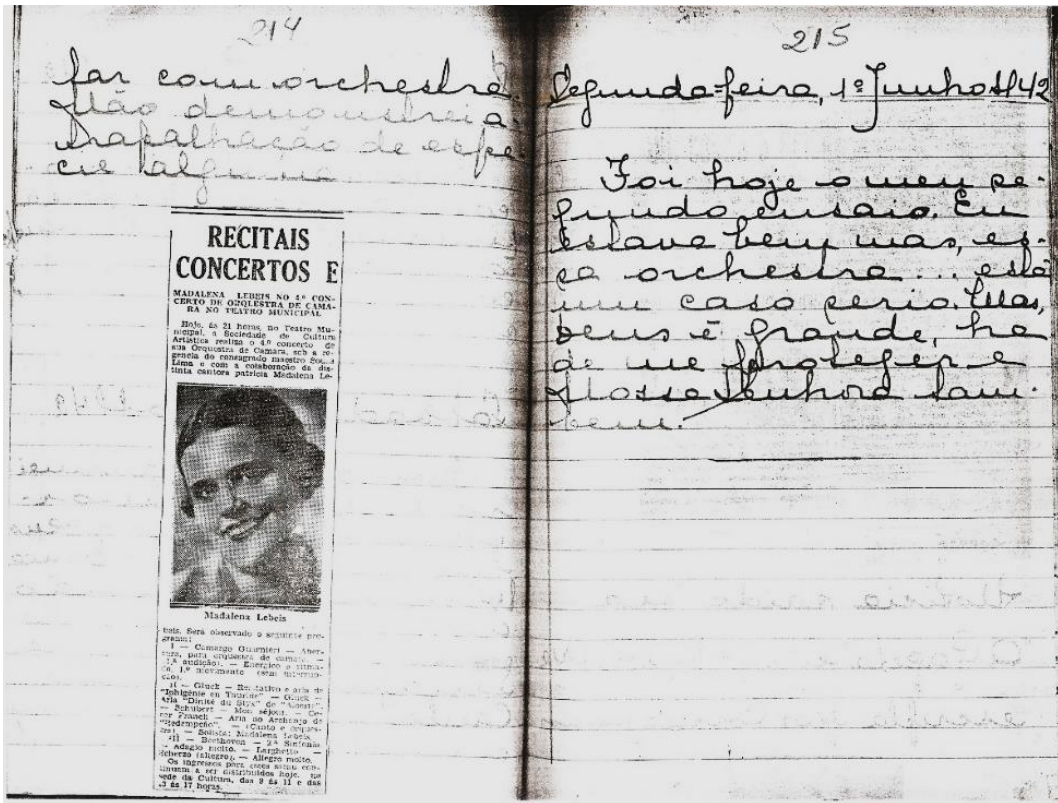 214
far com orchestra.
Não demonstrei a-
trapalhação de espe-
cie alguma
RECITAIS
CONCERTOS E
MADALENA LEBEIS NO 4.º CON-
CERTO DE ORQUESTRA DE CAMA-
RA NO TEATRO MUNICIPAL
Hoje, ás 21 horas, no Teatro Mu-
nicipal, a Sociedade de Cultura
Artistica realiza o 4.º concerto de
sua Orquestra de Camara, sob a re-
gencia do consagrado maestro Souza
Lima e com a colaboração da dis-
tinta cantora patricia Madalena Le-
Madalena Lebeis
beis. Será observado o seguinte pro-
grama:
I — Camargo Guarnieri — Aber-
tura, para orquestra de camara. —
(1.ª audição). — Energico e ritma-
do. 1.º movimento (sem interrup-
ções).
II — Gluck — Recitativo e aria de
"Iphigénie en Tauride" — Gluck —
Aria "Divinité du Styx" de "Alceste".
— Schubert — Mon séjour. — Ce-
sar Franck — Aria do Archanjo de
"Redempção". — (Canto e orques-
tra) — Solista: Madalena Lebeis.
III — Beethoven — 2.ª Sinfonia
— Adagio molto. — Larghetto —
Scherzo (allegro). — Allegro molto.
Os ingressos para esses sarau con-
tinuam a ser distribuidos hoje, na
sede da Cultura, das 9 ás 11 e das
13 ás 17 horas.
215
Segunda=feira, 1º Junho 942
Foi hoje o meu se-
gundo ensaio. Eu
estava bem mas, es-
sa orchestra... está
um caso serio. Mas,
Deus é grande, ha
de me proteger e
Nossa Senhora tam-
bem.